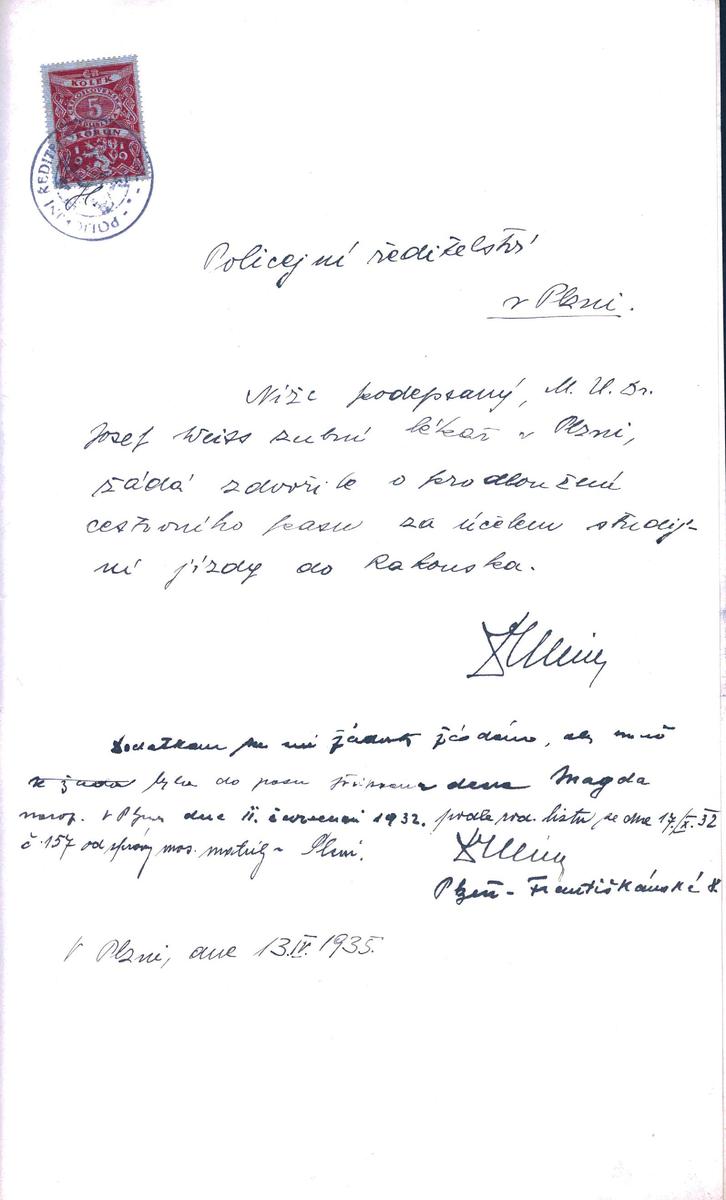 ČR
KOLEK
5
KORUN
1910
POLICEJNÍ ŘEDITE
Policejní ředitelství
v Plzni.
Níže podepsaný, M. U. Dr.
Josef Weiss zubní lékař v Plzni,
žádá zdvořile o prodloužení
cestovního pasu za účelem studij-
ní jízdy do Rakouska.
Dodatkem ke mé žádosti žádám, aby
byla do pasu dcera Magda
naroz. v Plzni dne 11. červenci 1932. podle rod. listu ze dne 17/IX. 32
č. 157 od správy mos. matrik v Plzni.
Plzeň - Františkánská 8
V Plzni, dne 13.IV.1935.